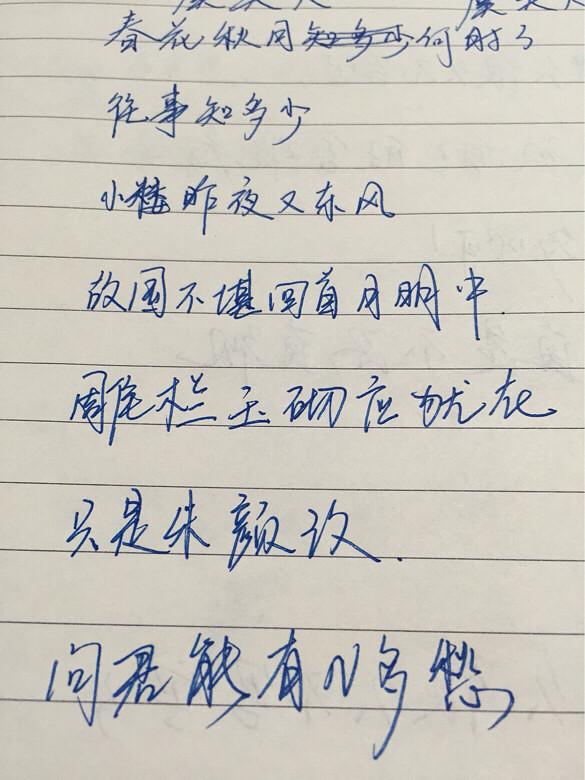 春花秋月何时了
往事知多少
小楼昨夜又东风
故国不堪回首月明中.
雕栏玉砌应犹在
只是朱颜改.
问君能有几多愁